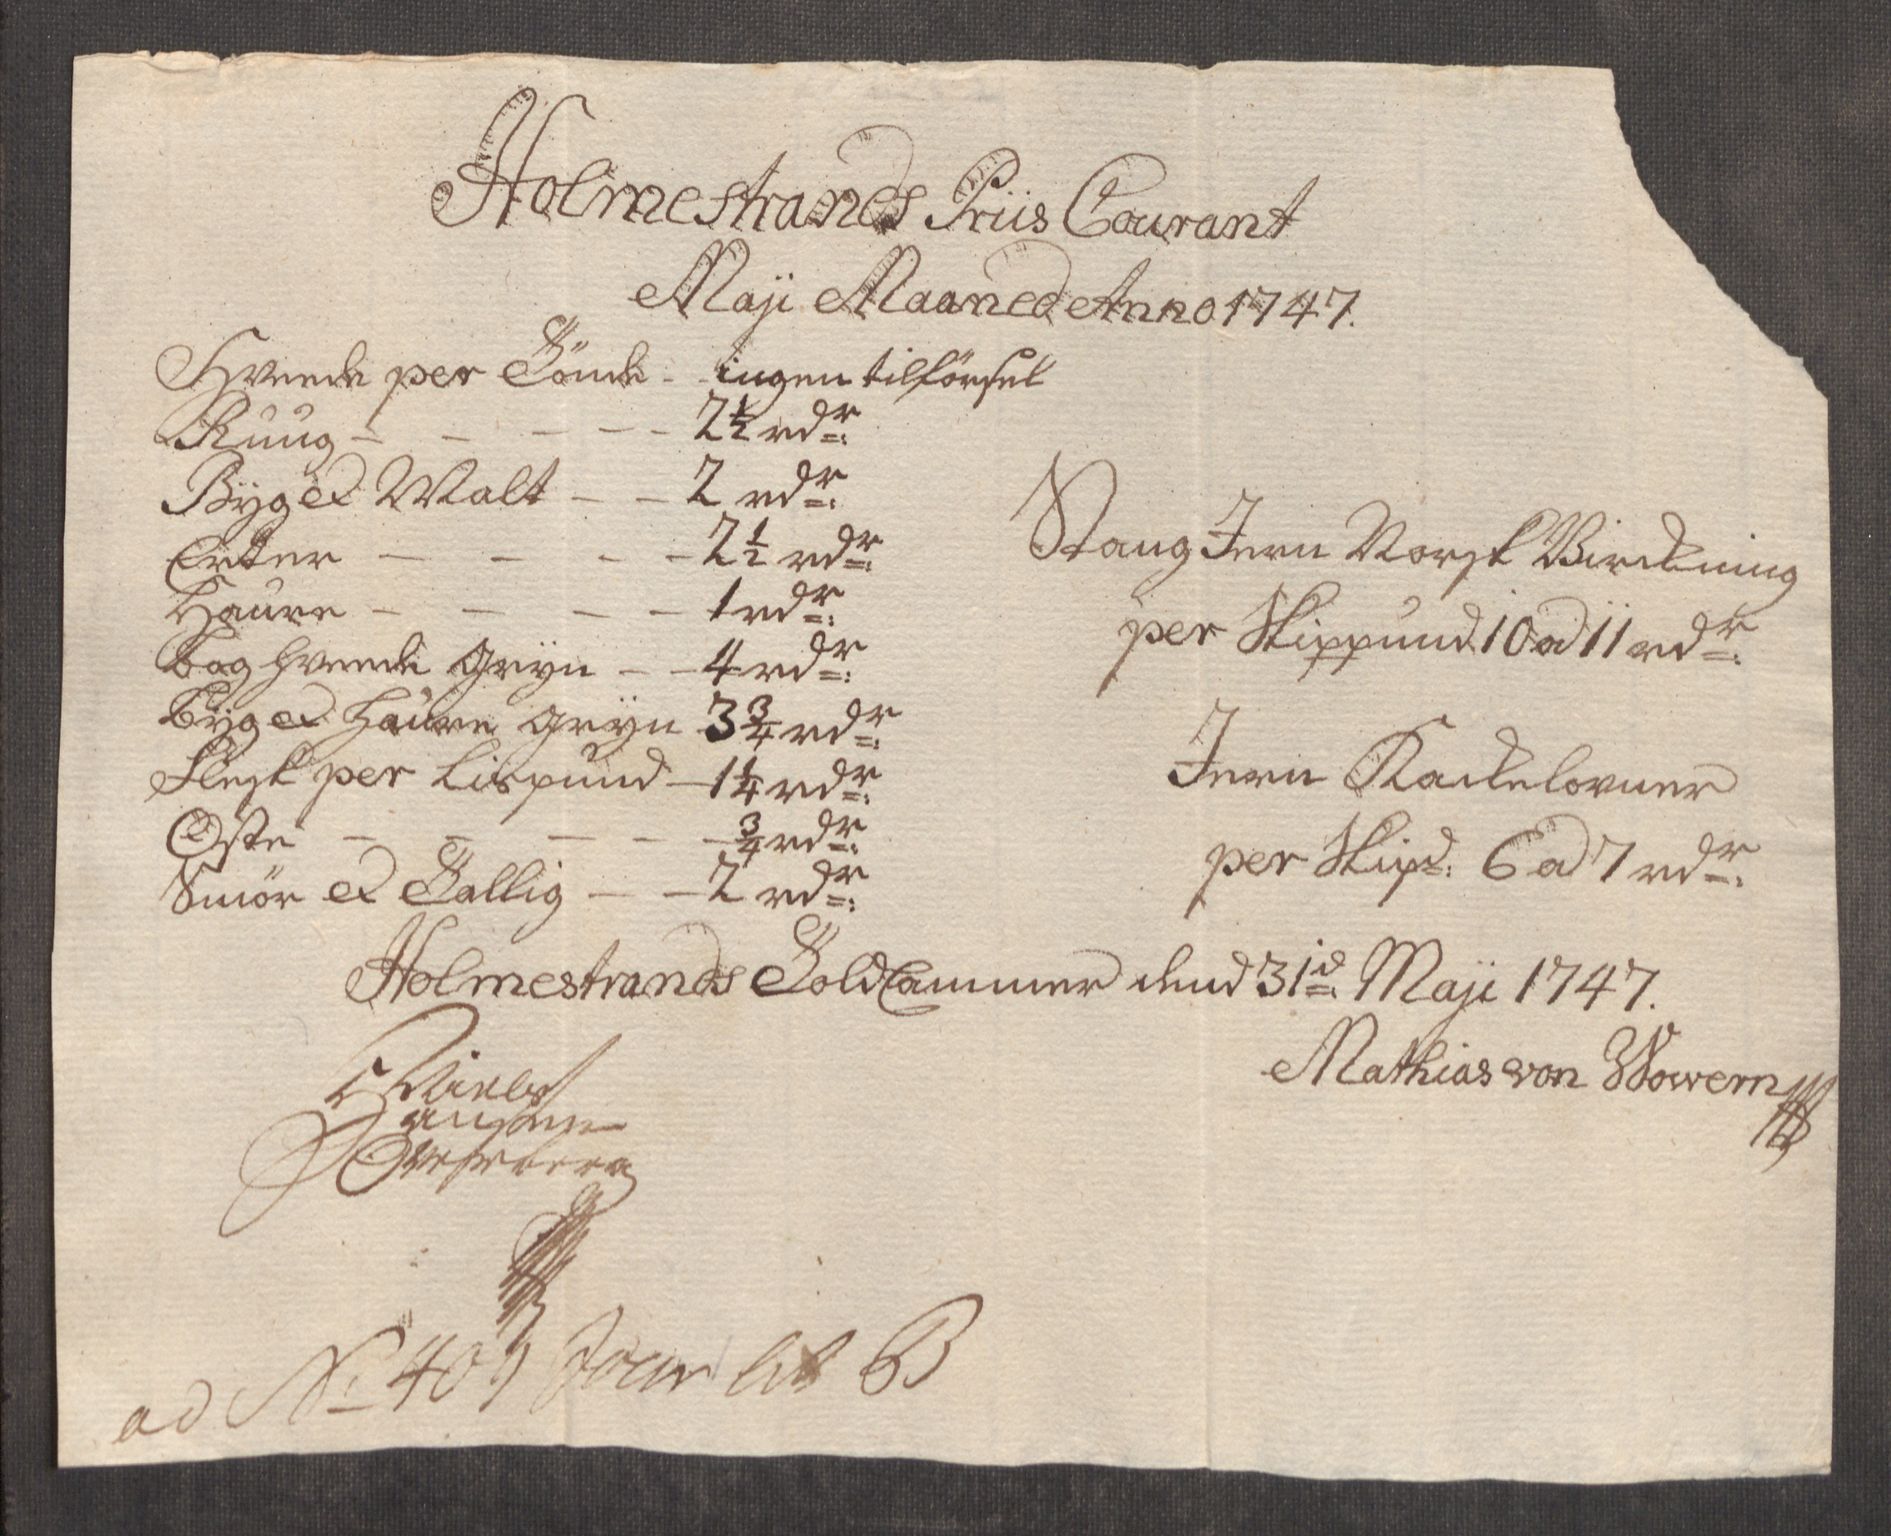 Holmestrands Priis Courant
Maji Maaned Anno 1747.
Hveede per Tönde - ingen tilförsel
Ruug - - - - - 2½ rdr:
Byg et Malt - - 2 rdr:
Erter - - - - 2½ rdr:
Haure - - - - 1 rdr:
Boghveede Gryn - - 4 rdr:
Byg et Haure Gryn 3¾ rdr:
Flesk per Lispund - 1¼ rdr:
Oste - - - - - ¾ rdr:
Smör et Tallig - - 2 rdr:
Stang Jern Norsk Virckning
per Skippund 10 a 11 rdr:
Jern Kackelovner
per Skipd: 6 a 7 rdr:
Holmestrands Told Cammer dend 31d Maji 1747.
Mathias von Wowern
Niels
Hansen
ad No 409 Jour lit B